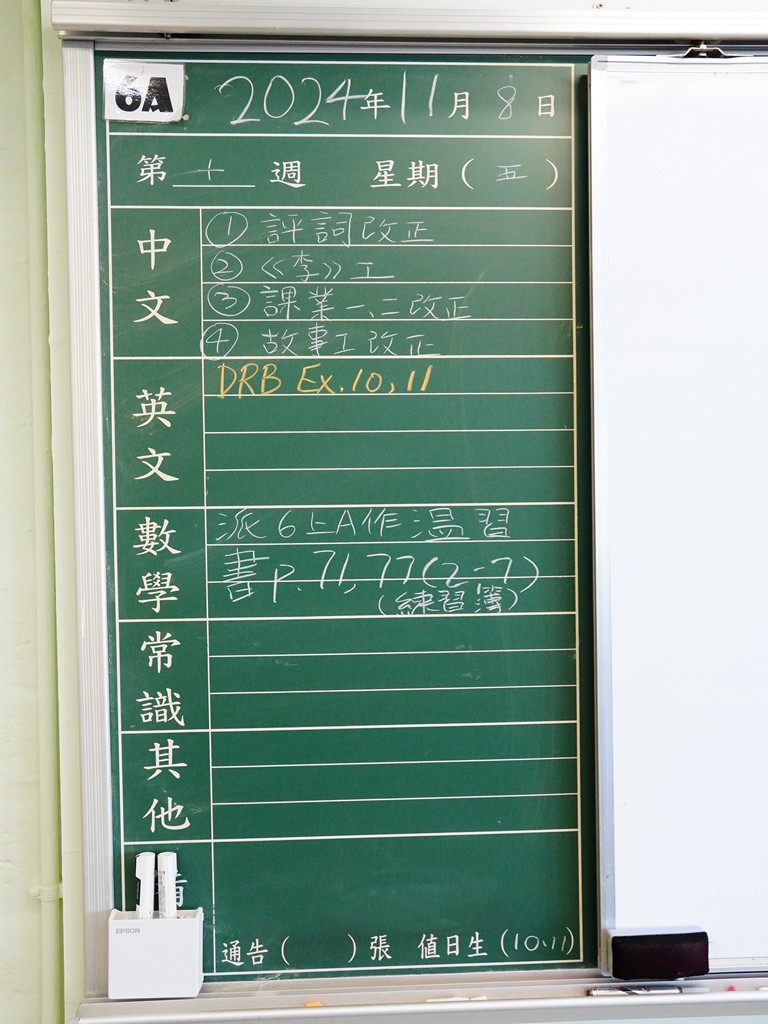 6A
2024年11月8日
第十週 星期(五)
中文
① 評詞改正
② 《李》工
③ 課業一、二改正
④ 故事工改正
英文
DRB Ex.10,11
數學
派6上A作溫習
書p.71,77(2-7)
(練習簿)
常識
其他
EPSON
通告( )張 值日生(10、11)